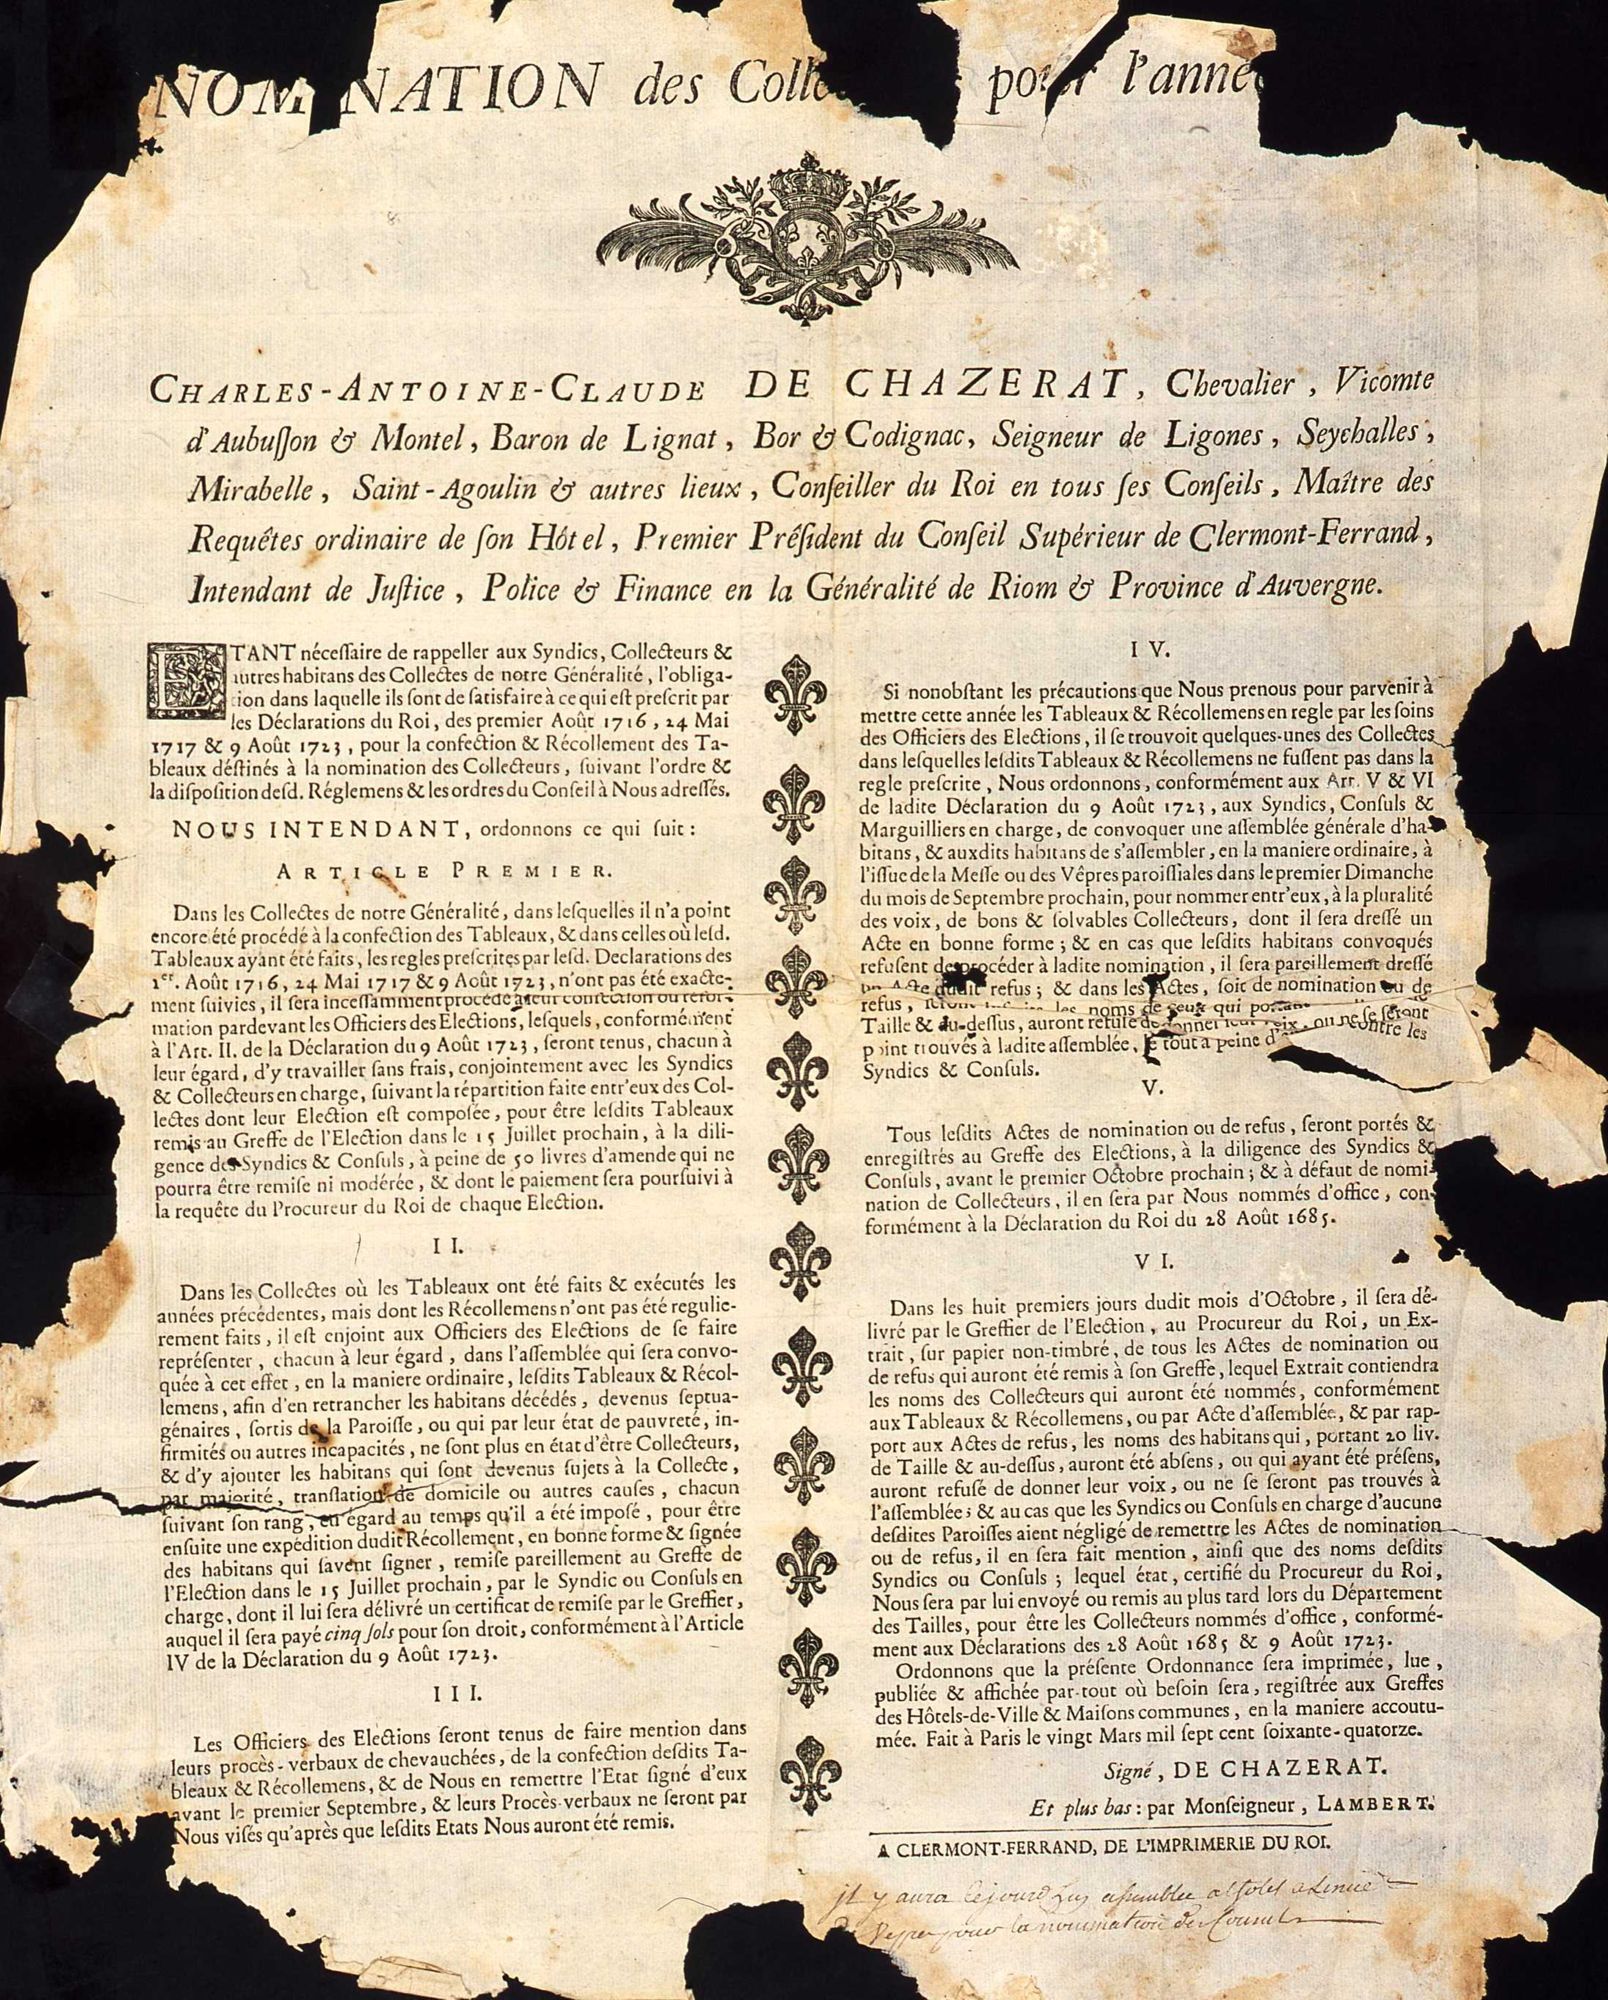 NOMINATION des Colle pour l'année
CHARLES-ANTOINE-CLAUDE DE CHAZERAT, Chevalier, Vicomte
d'Aubuſſon & Montel, Baron de Lignat, Bor & Codignac, Seigneur de Ligones, Seychalles,
Mirabelle, Saint-Agoulin & autres lieux, Conſeiller du Roi en tous ſes Conſeils, Maître des
Requêtes ordinaire de ſon Hôtel, Premier Préſident du Conſeil Supérieur de Clermont-Ferrand,
Intendant de Juſtice, Police & Finance en la Généralité de Riom & Province d'Auvergne.
ETANT néceſſaire de rappeller aux Syndics, Collecteurs &
autres habitans des Collectes de notre Généralité, l'obliga-
tion dans laquelle ils ſont de ſatisfaire à ce qui eſt preſcrit par
les Déclarations du Roi, des premier Août 1716, 24 Mai
1717 & 9 Août 1723, pour la confection & Récollement des Ta-
bleaux déſtinés à la nomination des Collecteurs, ſuivant l'ordre &
la diſpoſition deſd. Réglemens & les ordres du Conſeil à Nous adreſſés.
NOUS INTENDANT, ordonnons ce qui ſuit:
ARTICLE PREMIER.
Dans les Collectes de notre Généralité, dans leſquelles il n'a point
encore été procédé à la confection des Tableaux, & dans celles où leſd.
Tableaux ayant été faits, les regles preſcrites par leſd. Declarations des
1er. Août 1716, 24 Mai 1717 & 9 Août 1723, n'ont pas été exacte-
ment ſuivies, il ſera inceſſamment procédé à leur confection ou réfor-
mation pardevant les Officiers des Elections, leſquels, conformément
à l'Art. II. de la Déclaration du 9 Août 1723, ſeront tenus, chacun à
leur égard, d'y travailler ſans frais, conjointement avec les Syndics
& Collecteurs en charge, ſuivant la répartition faite entr'eux des Col-
lectes dont leur Election eſt compoſée, pour être leſdits Tableaux
remis au Greffe de l'Election dans le 15 Juillet prochain, à la dili-
gence des Syndics & Conſuls, à peine de 50 livres d'amende qui ne
pourra être remiſe ni modérée, & dont le paiement ſera pourſuivi à
la requête du Procureur du Roi de chaque Election.
II.
Dans les Collectes où les Tableaux ont été faits & exécutés les
années précédentes, mais dont les Récollemens n'ont pas été regulie-
rement faits, il eſt enjoint aux Officiers des Elections de ſe faire
repréſenter, chacun à leur égard, dans l'aſſemblée qui ſera convo-
quée à cet effet, en la maniere ordinaire, leſdits Tableaux & Récol-
lemens, afin d'en retrancher les habitans décédés, devenus ſeptua-
génaires, ſortis de la Paroiſſe, ou qui par leur état de pauvreté, in-
firmités ou autres incapacités, ne ſont plus en état d'être Collecteurs,
& d'y ajouter les habitans qui ſont devenus ſujets à la Collecte,
par majorité, tranſlation de domicile ou autres cauſes, chacun
ſuivant ſon rang, eu égard au temps qu'il a été impoſé, pour être
enſuite une expédition dudit Récollement, en bonne forme & ſignée
des habitans qui ſavent ſigner, remiſe pareillement au Greffe de
l'Election dans le 15 Juillet prochain, par le Syndic ou Conſuls en
charge, dont il lui ſera délivré un certificat de remiſe par le Greffier,
auquel il ſera payé cinq ſols pour ſon droit, conformément à l'Article
IV de la Déclaration du 9 Août 1723.
III.
Les Officiers des Elections ſeront tenus de faire mention dans
leurs procès-verbaux de chevauchées, de la confection deſdits Ta-
bleaux & Récollemens, & de Nous en remettre l'Etat ſigné d'eux
avant le premier Septembre, & leurs Procès-verbaux ne ſeront par
Nous viſés qu'après que leſdits Etats Nous auront été remis.
IV.
Si nonobſtant les précautions que Nous prenons pour parvenir à
mettre cette année les Tableaux & Récollemens en regle par les ſoins
des Officiers des Elections, il ſe trouvoit quelques-unes des Collectes
dans leſquelles leſdits Tableaux & Récollemens ne fuſſent pas dans la
regle preſcrite, Nous ordonnons, conformément aux Art. V & VI
de ladite Déclaration du 9 Août 1723, aux Syndics, Conſuls &
Marguilliers en charge, de convoquer une aſſemblée générale d'ha-
bitans, & auxdits habitans de s'aſſembler, en la maniere ordinaire, à
l'iſſue de la Meſſe ou des Vêpres paroiſſiales dans le premier Dimanche
du mois de Septembre prochain, pour nommer entr'eux, à la pluralité
des voix, de bons & ſolvables Collecteurs, dont il ſera dreſſé un
Acte en bonne forme; & en cas que leſdits habitans convoqués
refuſent de procéder à ladite nomination, il ſera pareillement dreſſé
un Acte dudit refus; & dans les Actes, ſoit de nomination ou de
refus, ſeront les noms de ceux qui portant
Taille & au-deſſus, auront refuſé de donner leur voix, ou ne ſe ſeront
point trouvés à ladite aſſemblée, le tout à peine d' contre les
Syndics & Conſuls.
V.
Tous leſdits Actes de nomination ou de refus, ſeront portés &
enregiſtrés au Greffe des Elections, à la diligence des Syndics &
Conſuls, avant le premier Octobre prochain; & à défaut de nomi-
nation de Collecteurs, il en ſera par Nous nommés d'office, con-
formément à la Déclaration du Roi du 28 Août 1685.
VI.
Dans les huit premiers jours dudit mois d'Octobre, il ſera dé-
livré par le Greffier de l'Election, au Procureur du Roi, un Ex-
trait, ſur papier non-timbré, de tous les Actes de nomination ou
de refus qui auront été remis à ſon Greffe, lequel Extrait contiendra
les noms des Collecteurs qui auront été nommés, conformément
aux Tableaux & Récollemens, ou par Acte d'aſſemblée, & par rap-
port aux Actes de refus, les noms des habitans qui, portant 20 liv.
de Taille & au-deſſus, auront été abſens, ou qui ayant été préſens,
auront refuſé de donner leur voix, ou ne ſe ſeront pas trouvés à
l'aſſemblée; & au cas que les Syndics ou Conſuls en charge d'aucune
deſdites Paroiſſes aient négligé de remettre les Actes de nomination
ou de refus, il en ſera fait mention, ainſi que des noms deſdits
Syndics ou Conſuls; lequel état, certifié du Procureur du Roi,
Nous ſera par lui envoyé ou remis au plus tard lors du Département
des Tailles, pour être les Collecteurs nommés d'office, conformé-
ment aux Déclarations des 28 Août 1685 & 9 Août 1723.
Ordonnons que la préſente Ordonnance ſera imprimée, lue,
publiée & affichée par-tout où beſoin ſera, regiſtrée aux Greffes
des Hôtels-de-Ville & Maiſons communes, en la maniere accoutu-
mée. Fait à Paris le vingt Mars mil ſept cent ſoixante-quatorze.
Signé, DE CHAZERAT.
Et plus bas: par Monſeigneur, LAMBERT.
A CLERMONT-FERRAND, DE L'IMPRIMERIE DU ROI.
il y aura cejourdhuy assemblée a
pour la nomination des